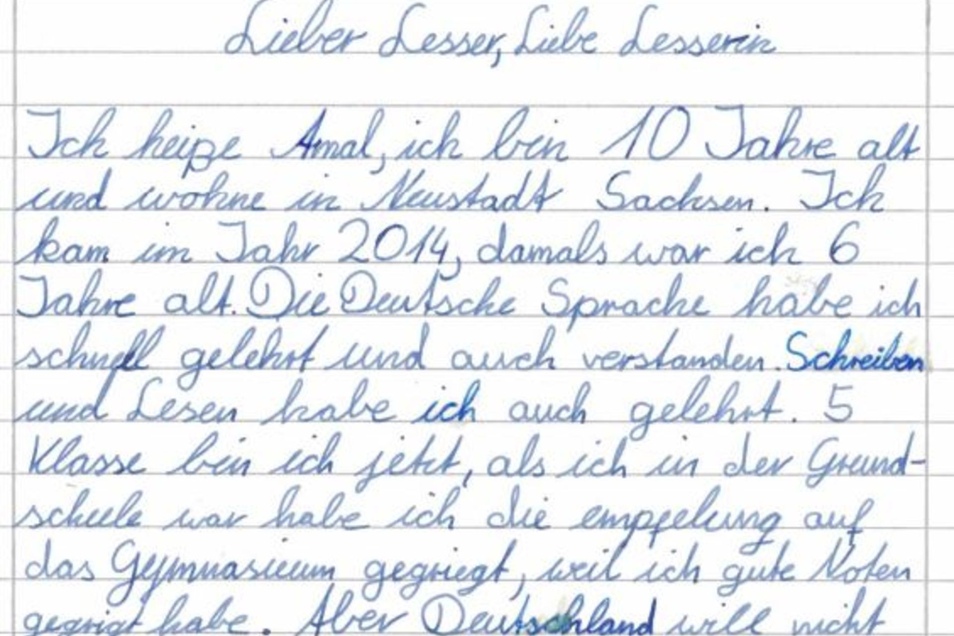 Lieber Lesser, Liebe Lesserin
Ich heiße Amal, ich bin 10 Jahre alt
und wohne in Neustadt Sachsen. Ich
kam im Jahr 2014, damals war ich 6
Jahre alt. Die Deutsche Sprache habe ich
schnell gelehrt und auch verstanden. Schreiben
und Lesen habe ich auch gelehrt. 5
Klasse bin ich jetzt, als ich in der Grund-
schule war habe ich die empfelung auf
das Gymnasium gegriegt, weil ich gute Noten
gegrigt habe. Aber Deutschland will nicht